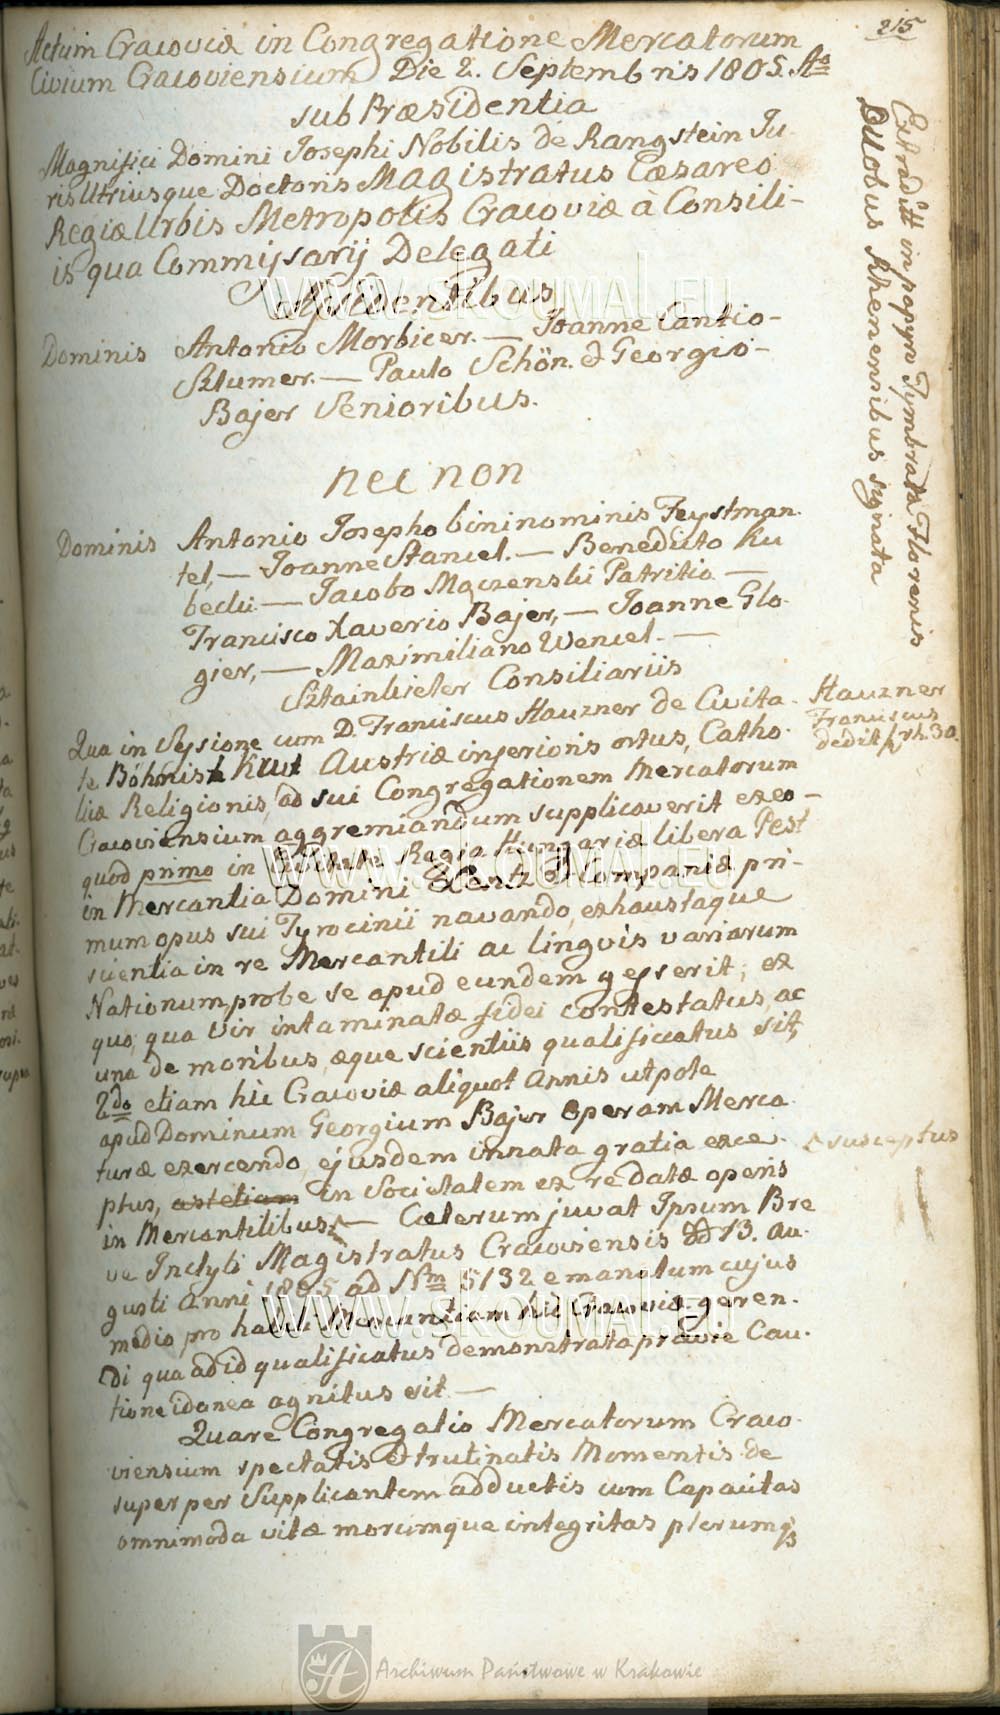 215
Actum Cracoviæ in Congregatione Mercatorum
Civium Cracoviensium Die 2. Septembris 1805. Ao
sub Præsidentia
Magnifici Domini Josephi Nobilis de Rangstein Ju
ris Utriusque Doctoris Magistratus Cæsareo
Regiæ Urbis Metropolis Cracoviæ à Consili-
is qua Commissarij Delegati
Assidentibus
Dominis Antonio Morbicer. — Joanne Cantio-
Sztumer. — Paulo Schön. & Georgio-
Bajer Senioribus.
nec non
Dominis Antonio Josepho binominis Feystman-
tel, — Joanne Stancel. — Benedicto Ku
becki — Jacobo Mączenski Patritio —
Francisco Xaverio Bajer, — Joanne Glo-
gier, — Maximiliano Wencel. —
Sztainkieler Consiliariis
Qua in Sessione cum D. Franciscus Hauzner de Civita-
te Böhmisch Krut Austriæ inferioris ortus, Catho-
licæ Religionis, ad sui Congregationem Mercatorum
Cracoviensium aggremiandum supplicaverit exeo-
quod primo in Civitate Regia Hungariæ libera Pest
in Mercantia Domini et Companiæ pri-
mum opus sui Tyrocinii navando, exhaustaque
scientia in re Mercantili ac linguis variarum
Nationum, probe se apud eundem gesserit; ex
quo, qua Vir intaminatæ fidei contestatus, ac
una de moribus, æque scientiis qualificatus sit,
2do etiam hic Cracoviæ aliquot Annis utpote
apud Dominum Georgium Bajer Operam Merca-
turæ exercendo, ejusdem innata gratia exce-
ptus, ast etiam in Societatem ex re datæ operis
in Mercantilibus, — Cæterum juvat Ipsum Bre
ve Inclyti Magistratus Cracoviensis dd 13. Au-
gusti Anni 1805 ad Nm 5132 emanatum cujus
medio, pro habili Mercantiam hic Cracoviæ geren-
di qua ad id qualificatus demonstrata prævie Cau-
tione idonea agnitus sit. —
Quare Congregatio Mercatorum Craco-
viensium spectatis et trutinatis Momentis de
super per Supplicantem adductis cum Capacitas
omnimoda vitæ morumque integritas plerumqs
Extradit in papyri Tymbrata Florenis
Duobus Rhenensibus signata
Hauzner
Franciscus
dedit frh. 30.
susceptus
www.skoumal.eu
www.skoumal.eu
www.skoumal.eu
Archiwum Państwowe w Krakowie